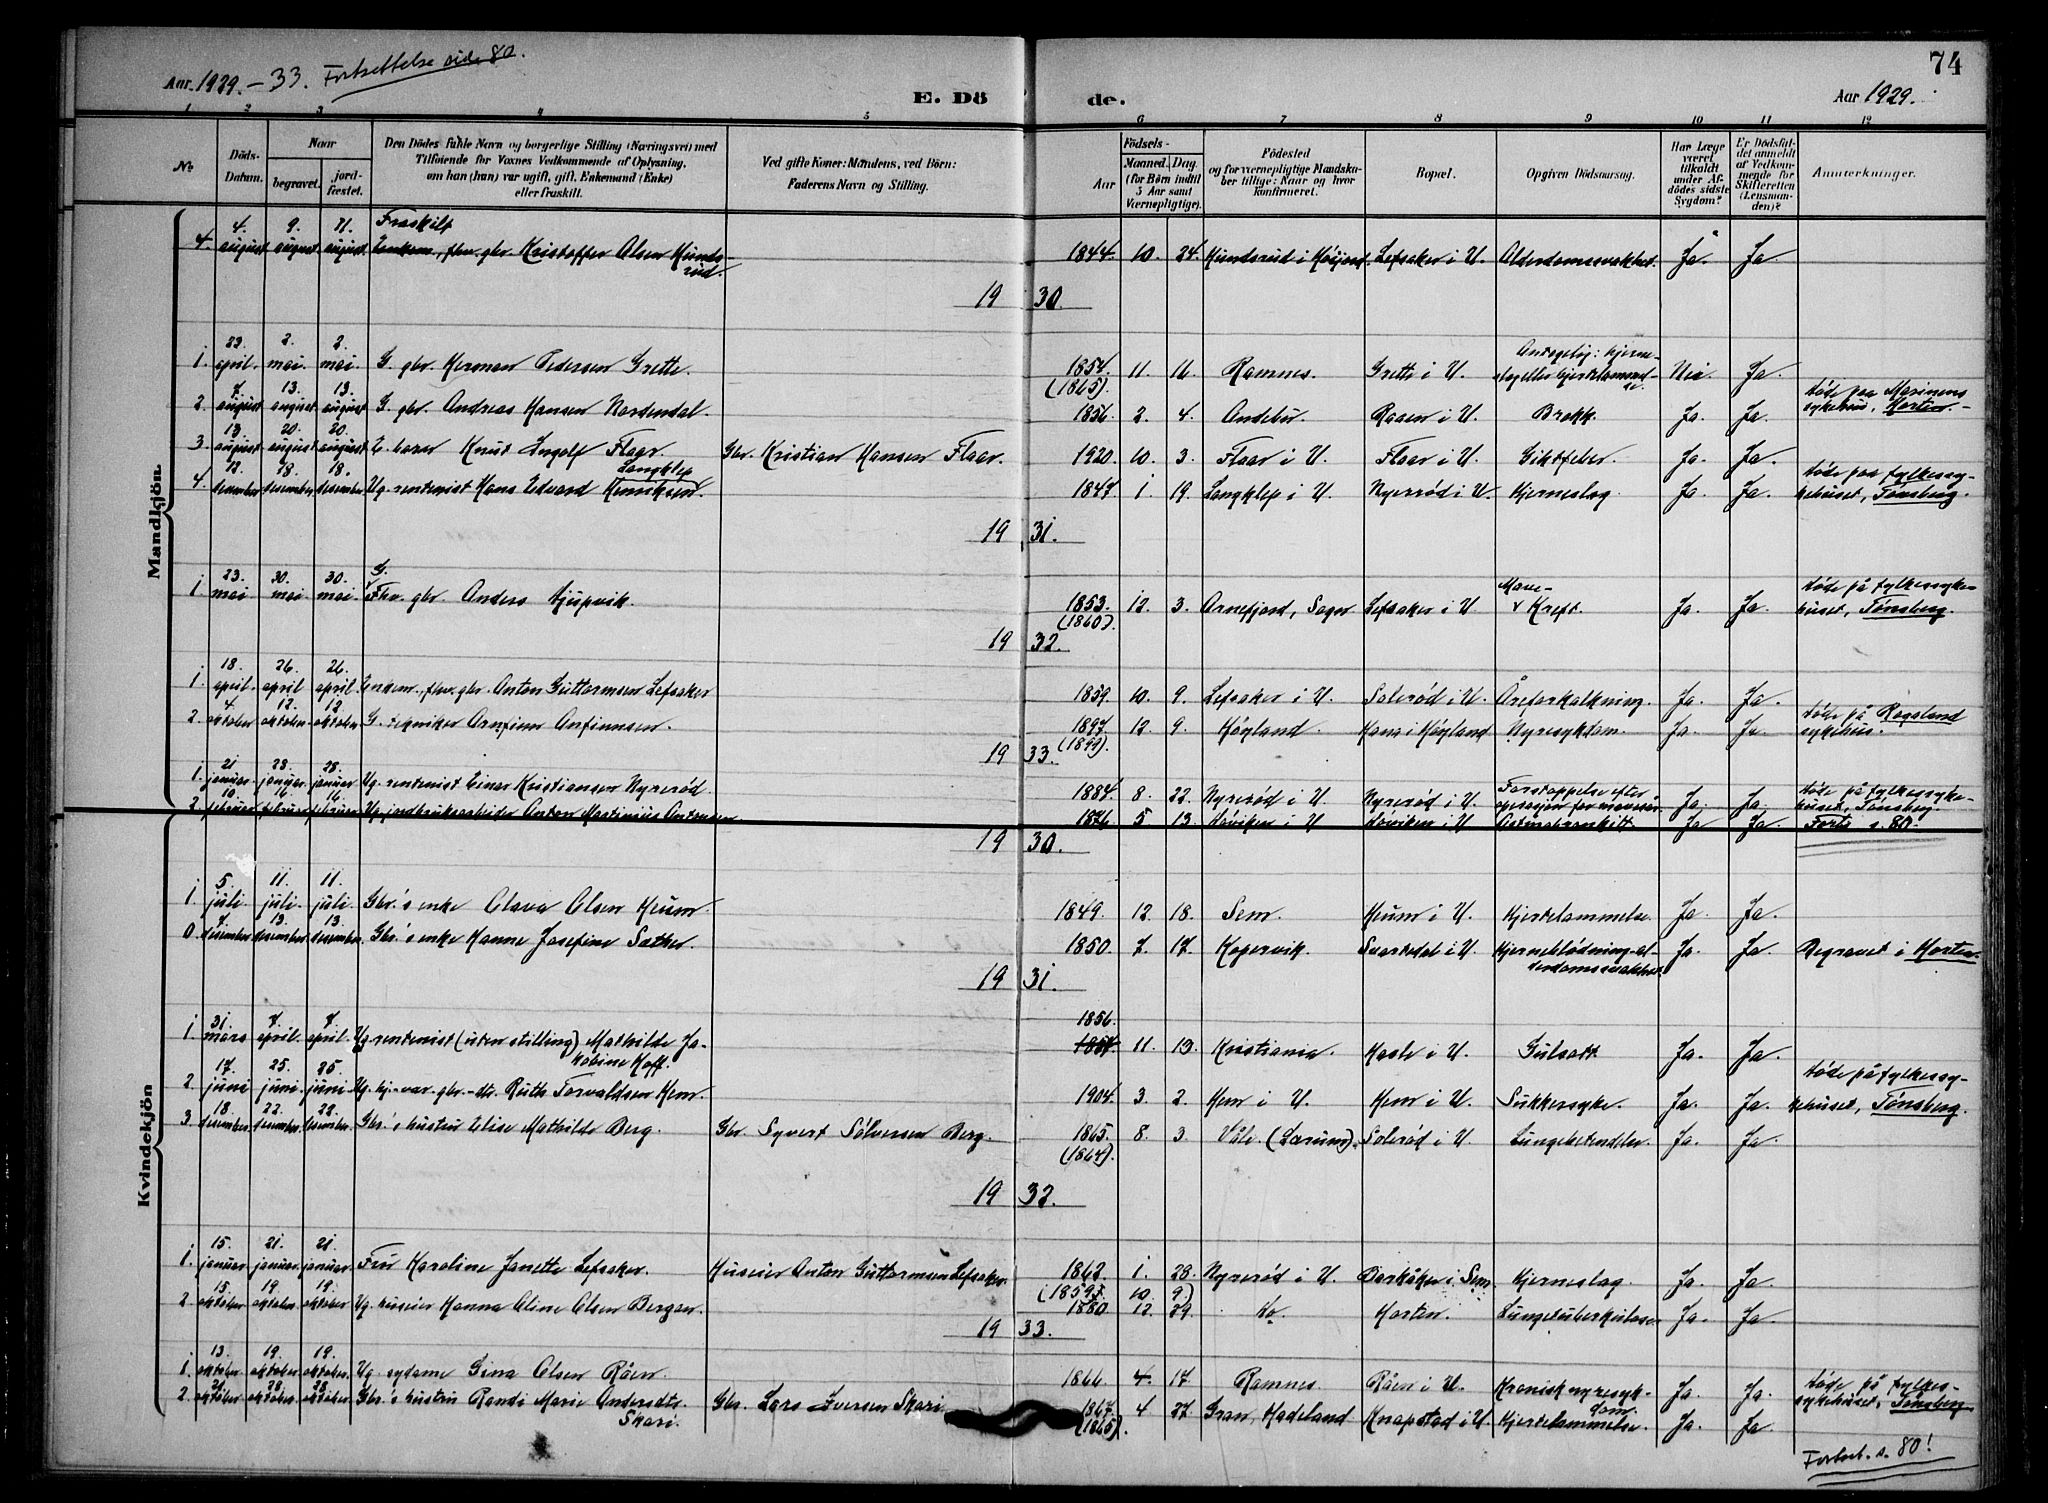 74
Aar 1929. – 33. Fortsettelse side 80.
E. Dö de.
Aar 1929.
1 2 3 4 5 6 7 8 9 10 11 12
No. Döds-Datum. Naar begravet. jordfæstet. Den Dödes fulde Navn og borgerlige Stilling (Næringsvei) med Tilföiende for Voxnes Vedkommende af Oplysning, om han (hun) var ugift, gift, Enkemand (Enke) eller fraskilt. Ved gifte Koner: Mandens, ved Börn: Faderens Navn og Stilling. Födsels- Aar Maaned. Dag. (for Børn indtil 3 Aar samt Værnepligtige). Födested og for værnepligtige Mandskaber tillige: Naar og hvor konfirmeret. Bopæl. Opgiven Dödsaarsag. Har Læge været tilkaldt under Afdödes sidste Sygdom? Er Dödsfaldet anmeldt af Vedkommende for Skifteretten (Lensmanden)? Anmærkninger.
Mandkjön
Fraskilt
4. 4. august 9. august 11. august Enkem., fhv. gbr. Kristoffer Olsen Hundsrud. 1844 10. 24. Hundsrud i Høijord. Lefsaker i U. Alderdomssvakhet. Ja. Ja
19 30.
1. 23. april. 2. mai. 2. mai. G. gbr. Herman Pedersen Grette. 1854. (1865) 11. 16. Ramnes. Grette i U. Antagelig: hjerneslag eller hjertelammelse. Nei. Ja.
2. 7. august 13. august 13. august G. gbr. Andreas Hansen Nordendal. 1856 2. 4. Andebu. Raaen i U. Brokk. Ja. Ja. døde paa Marinens sykehus, Horten.
3. 13. august 20. august 20. august E. barn Knut Ingolf Flaar. Gbr. Kristian Hansen Flaar. 1920. 10. 3. Flaar i U. Flaar i U. Giktfeber. Ja. Ja.
4. 13. desember 18. desember 18. desember Ug. rentenist Hans Edvard Henriksen Langklep. 1847 1. 19. Langklep i U. Nyerrød i U. Hjerneslag Ja. Ja. døde paa fylkessykehuset, Tønsberg.
19 31.
1. 23. mai 30. mai 30. mai. G. Fhv. gbr. Anders Djupvik. 1853. (1860). 12. 3. Arnefjord, Sogn Lefsaker i U Mave- Kreft. Ja. Ja. døde på fylkessykehuset, Tønsberg.
19 32.
1. 18. april. 26. april 26. april. Enkem., fhv. gbr. Anton Guttormsen Lefsaker 1859. 10. 9. Lefsaker i U. Solerød i U. Åreforkalkning. Ja. Ja.
2. 4. oktober 12. oktober. 12. oktober. G. tekniker Arnfinn Anfinnsen. 1897 (1899). 12. 9. Høyland. Hana i Høyland Nyresykdom. Ja. Ja. døde på Rogaland sykehus.
19 33.
1. 21. januar. 28. januar. 28. januar Ug. rentenist Einar Kristiansen Nyrerød. 1884. 8. 22. Nyrerød i U. Nyrerød i U. Forstoppelse efter operasjon for mavesår Ja. Ja. døde på fylkessykehuset, Tønsberg.
2. 10. februar 16. februar 16. februar Ug. jordbruksarbeider Anton Martinius Antonsen 1876 5 13 Hoviken i U Hoviken i U Astmabronkitt Ja Ja Forts. s. 80.
Kvindekjön
19 30.
1. 5. juli. 11. juli. 11. juli. Gbr.'s enke Olava Olsen Heum. 1849. 12. 18. Sem. Heum i U. Hjertelammelse. Ja. Ja.
0. 7. desember 13. desember 13. desember. Gbr.'s enke Hanne Josefine Sæther. 1850. 7. 17. Kopervik. Svartdal i U. Hjerneblødning-alderdomssvakhet Ja. Ja. Begravet i Horten.
19 31.
1. 31. mars 7. april. 7. april. Ug. rentenist (uten stilling) Mathilde Jakobine Hoff. 1856 1857 11. 13. Kristiania. Hasle i U. Gulsott. Ja. Ja.
2. 17. juni 25. juni. 25. juni Ug. hj.-vær. gbr.-dtr. Ruth Torvaldsen Hem. 1904. 3. 2. Hem i U. Hem i U. Sukkersyke. Ja. Ja. døde på fylkessykehuset, Tønsberg.
3 18. desember 22. desember 22. desember. Gbr.'s hustru Elise Mathilde Berg. Gbr. Syvert Sølversen Berg. 1865. (1864). 8. 3. Våle (Lærum). Solerød i U. Lungebetendelse. Ja. Ja.
19 32.
1. 15. januar 21. januar. 21. januar. Fru Karoline Janette Lefsaker. Huseier Anton Guttormsen Lefsaker. 1862. (1859 1. 10 28. 9.) Nyrerød i U. Barkåker i Sem. Hjerneslag. Ja. Ja
2. 15. oktober 19. oktober. 19. oktober Ug. huseier Hanna Oline Olsen Bergan. 1880 12. 29. do Horten. Lungetuberkulose Ja. Ja
19 33.
1. 13. oktober 19. oktober. 19. oktober. Ug. sydame Gina Olsen Råen. 1866. 4. 17 Ramnes. Råen i U. Kronisk nyresykdom. Ja. Ja. døde på fylkessykehuset, Tønsberg
2. 21. oktober 28. oktober. 28. oktober Gbr.'s hustru Randi Marie Andersdtr. Skari. Gbr. Lars Iversen Skari 1867 (1865). 4 27. Gran, Hadeland Knapstad i U. Hjertelammelse. Ja. Ja
Fortset. s. 80!